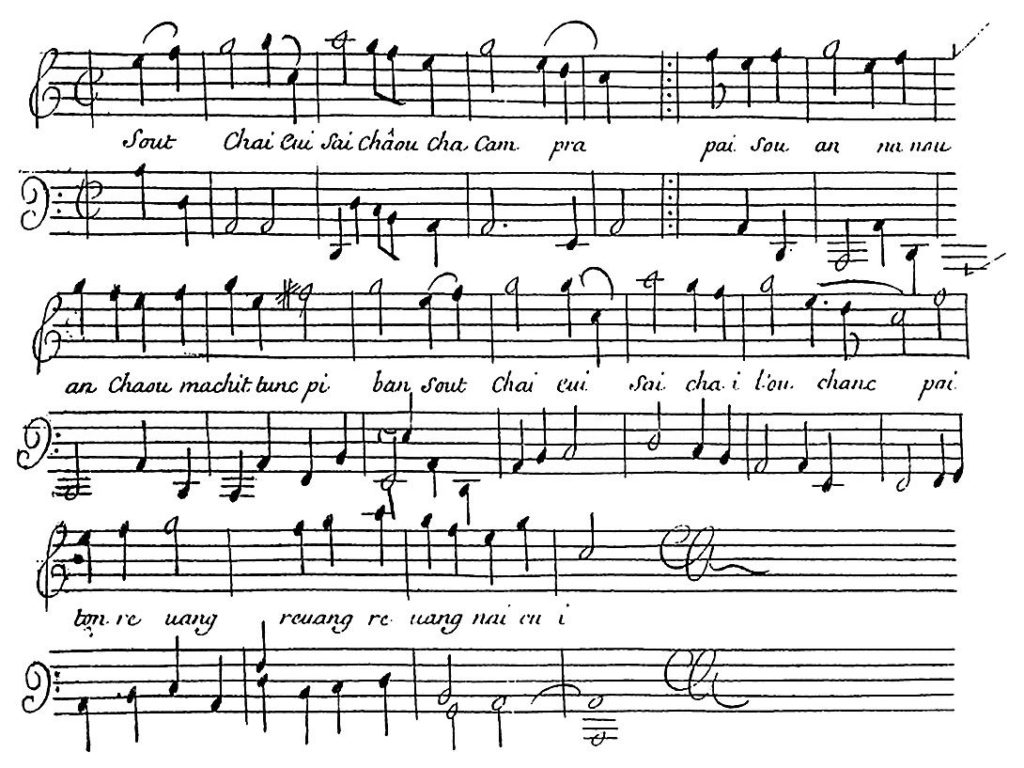 Sout Chai Cui Sai Châou cha Cam pra pai Sou an nu nau
an Chaou machit tunc pi ban Sout Chai cui Sai cha i l'ou chanc pai
ton re uang reuang re uang nai cu i